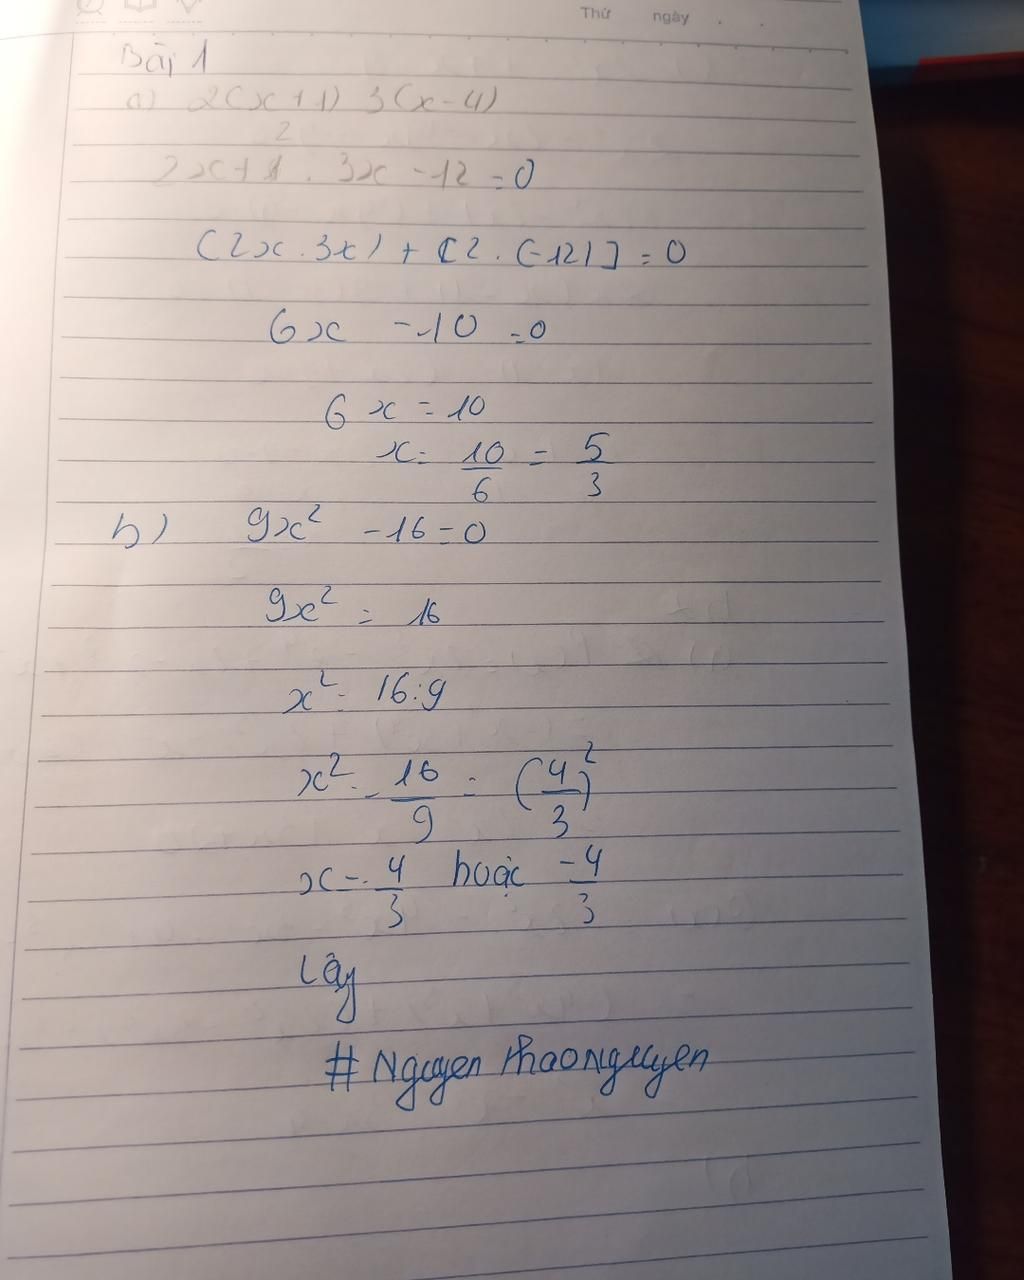 Thứ ngày . .
Bài 1
a) 2(x+1) 3(x-4)
2
2x+1 . 3x -12 =0
(2x . 3x) + [2 . (-12)] = 0
6x -10 =0
6 x = 10
x= 10/6 = 5/3
b) 9x² -16=0
9x² = 16
x² = 16:9
x² = 16/9 = (4/3)²
x = 4/3 hoặc -4/3
Lậy
# Nguyen thaonguyen